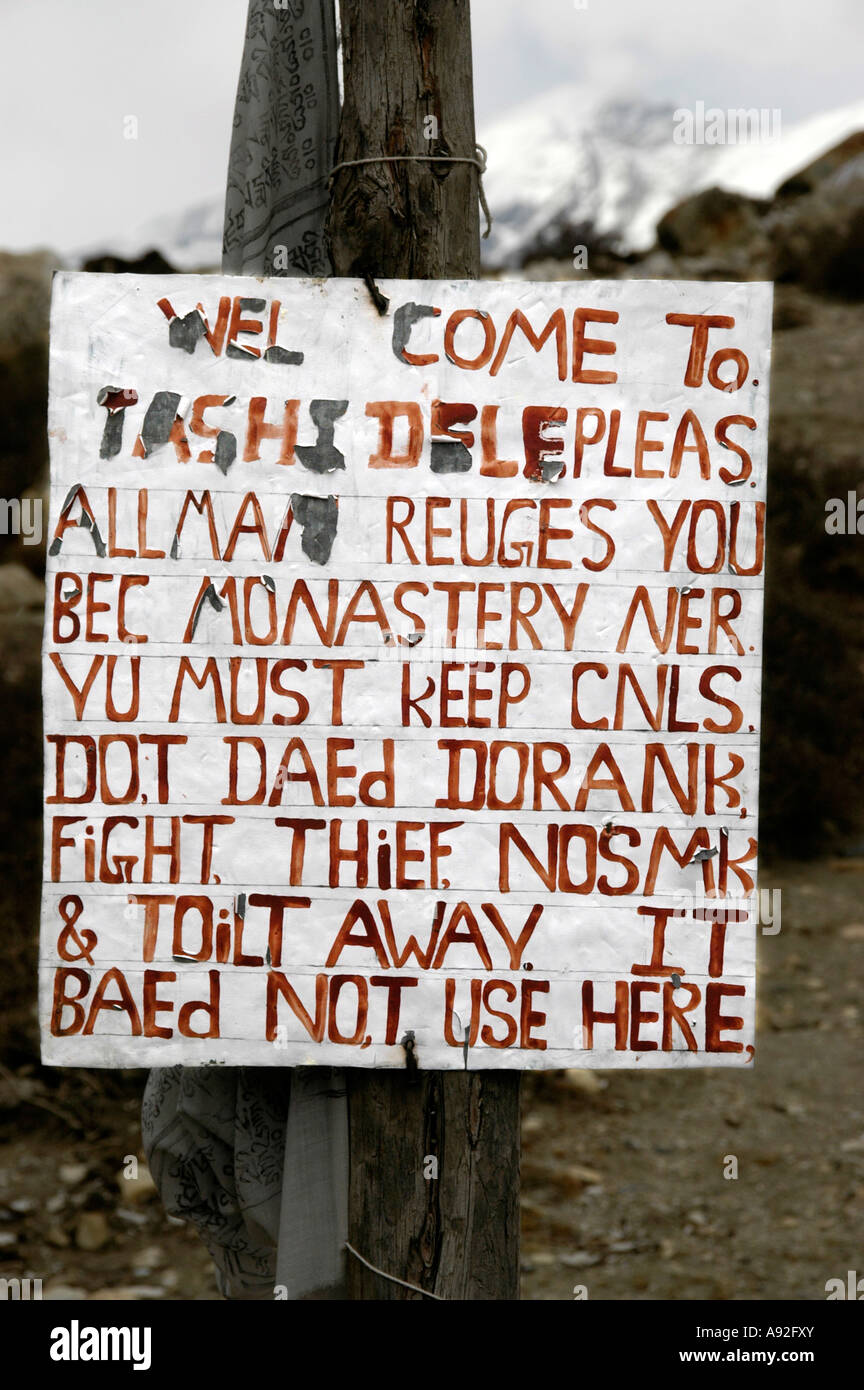 WEL COME TO.
TASHI DELEPLEAS.
ALLMAN REUGES YOU
BEC MONASTERY NER.
YU MUST KEEP CNLS.
DO,T DAEd DORANK,
FiGHT, THiEF, NOSMK
& TOiLT AWAY. IT
BAEd NO,T USE HERE,
alamy
Image ID: A92FXY
www.alamy.com